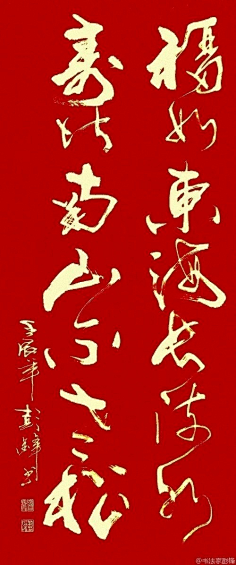 福如東海長流水
寿比南山不老松
壬辰年 彭鋒书
@书法家彭锋